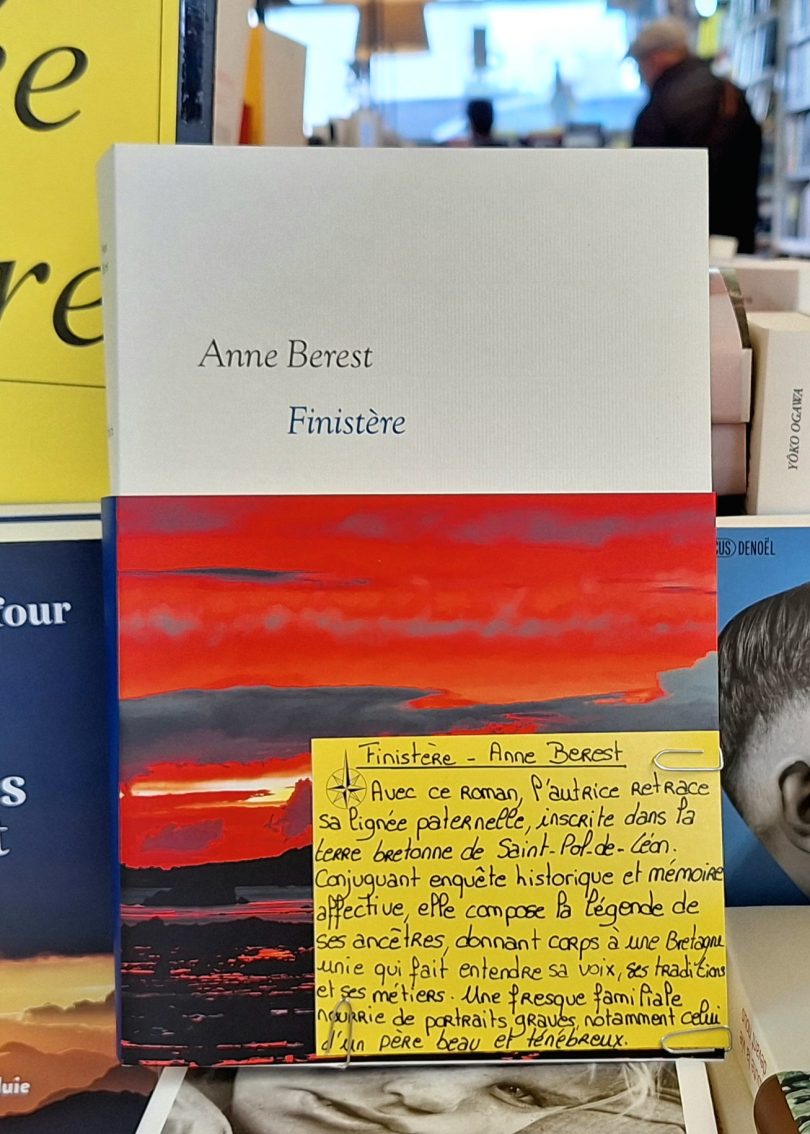 Anne Berest
Finistère
Finistère - Anne Berest
Avec ce roman, l'autrice retrace
sa lignée paternelle, inscrite dans la
terre bretonne de Saint-Pol-de-Léon.
Conjuguant enquête historique et mémoire
affective, elle compose la légende de
ses ancêtres, donnant corps à une Bretagne
unie qui fait entendre sa voix, ses traditions
et ses métiers. Une fresque familiale
nourrie de portraits graves, notamment celui
d'un père beau et ténébreux.
YÔKO OGAWA
DENOËL
four